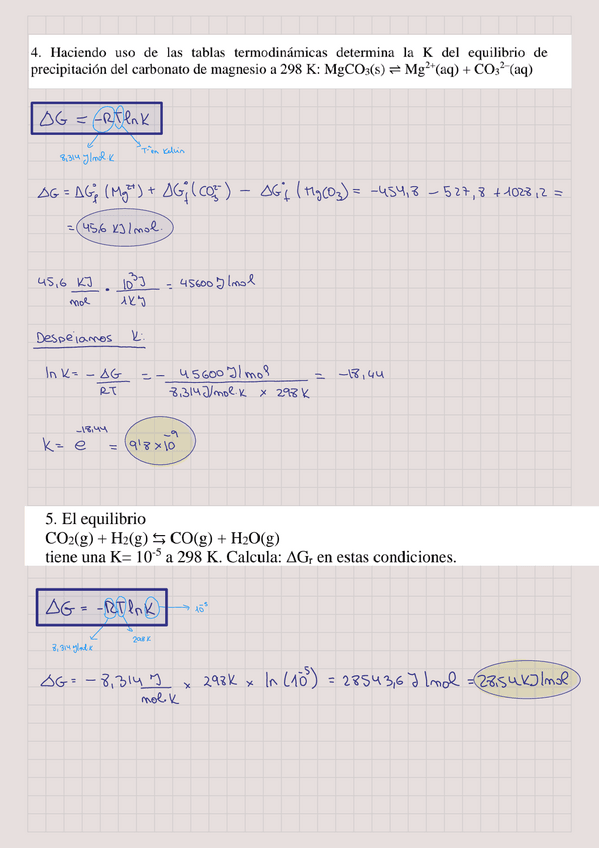 4. Haciendo uso de las tablas termodinámicas determina la K del equilibrio de
precipitación del carbonato de magnesio a 298 K: MgCO₃(s) ⇌ Mg²⁺(aq) + CO₃²⁻(aq)
ΔG = -RTlnK
8,314 J/mol K
Tª en Kelvin
ΔG = ΔG°f (Mg²⁺) + ΔG°f (CO₃²⁻) - ΔG°f (MgCO₃) = -454,8 - 527,8 + 1028,2 =
= 45,6 KJ/mol.
45,6 KJ/mol · 10³J/1KJ = 45600 J/mol
Despejamos K:
ln K = - ΔG/RT = - 45600 J/mol / 8,314 J/mol·K × 298 K = -18,44
K = e^-18,44 = 9'8 × 10^-9
5. El equilibrio
CO₂(g) + H₂(g) ⇆ CO(g) + H₂O(g)
tiene una K= 10⁻⁵ a 298 K. Calcula: ΔGᵣ en estas condiciones.
ΔG = -RTlnK → 10⁻⁵
8,314 J/mol K
298 K
ΔG = - 8,314 J/mol·K × 298K × ln (10⁻⁵) = 28543,6 J/mol = 28,54 KJ/mol